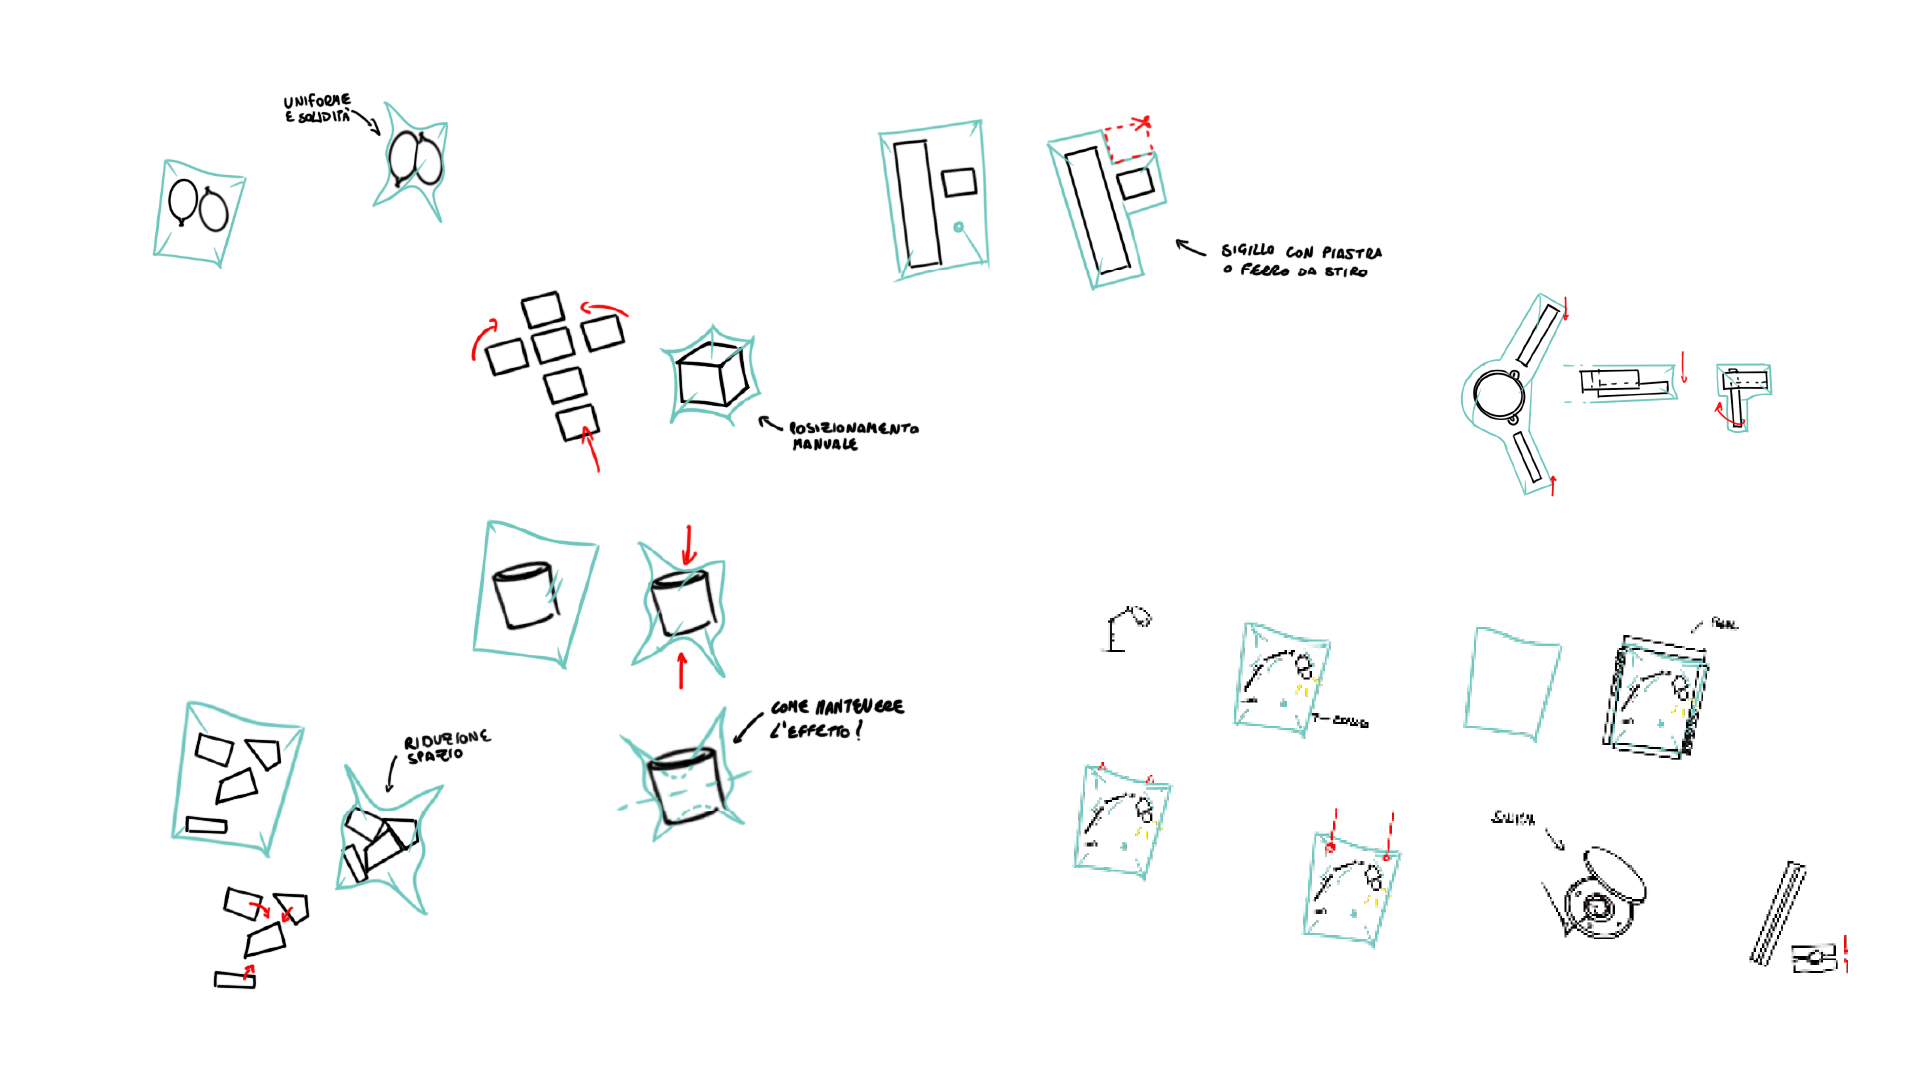 UNIFORME
E SOLIDITÀ
SIGILLO CON PIASTRA
O FERRO DA STIRO
POSIZIONAMENTO
MANUALE
COME MANTENERE
L'EFFETTO!
RIDUZIONE
SPAZIO